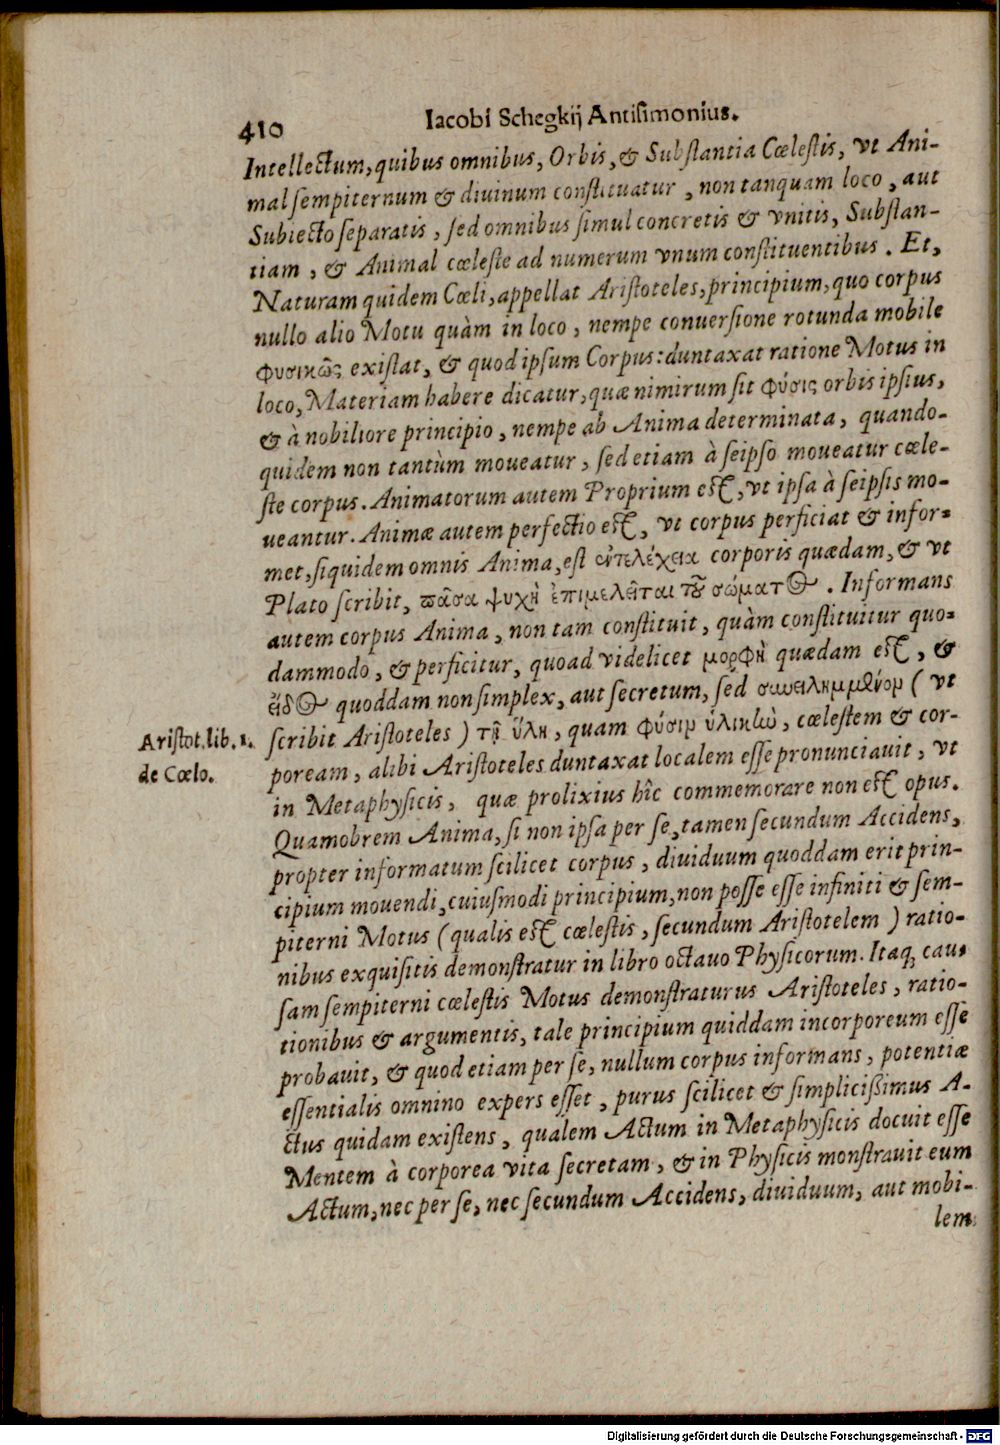 410
Iacobi Schegkij Antisimonius.
Intellectum, quibus omnibus, Orbis, & Substantia Cœlestis, vt Ani-
mal sempiternum & diuinum constituatur, non tanquam loco, aut
Subiecto separatis, sed omnibus simul concretis & vnitis, Substan-
tiam, & Animal cœleste ad numerum vnum constituentibus. Et,
Naturam quidem Cœli, appellat Aristoteles, principium, quo corpus
nullo alio Motu quàm in loco, nempe conuersione rotunda mobile
φυσικῶς existat, & quod ipsum Corpus: duntaxat ratione Motus in
loco, Materiam habere dicatur, quæ nimirum sit φύσις orbis ipsius,
& à nobiliore principio, nempe ab Anima determinata, quando-
quidem non tantùm moueatur, sed etiam à seipso moueatur cœle-
ste corpus. Animatorum autem Proprium est, vt ipsa à seipsis mo-
ueantur. Animæ autem perfectio est, vt corpus perficiat & infor-
met, siquidem omnis Anima, est ἐντελέχεια corporis quædam, & vt
Plato scribit, πᾶσα ψυχὴ ἐπιμελεῖται τοῦ σώματος. Informans
autem corpus Anima, non tam constituit, quàm constituitur quo-
dammodo, & perficitur, quoad videlicet μορφὴ quædam est, &
εἶδος quoddam non simplex, aut secretum, sed συνειλημμένον (vt
Aristot. lib. 1.
de Cœlo.
scribit Aristoteles) τῇ ὕλῃ, quam φύσιν ὑλικὴν, cœlestem & cor-
poream, alibi Aristoteles duntaxat localem esse pronunciauit, vt
in Metaphysicis, quæ prolixius hîc commemorare non est opus.
Quamobrem Anima, si non ipsa per se, tamen secundum Accidens,
propter informatum scilicet corpus, diuiduum quoddam erit prin-
cipium mouendi, cuiusmodi principium, non posse esse infiniti & sem-
piterni Motus (qualis est cœlestis, secundum Aristotelem) ratio-
nibus exquisitis demonstratur in libro octauo Physicorum. Itaq; cau-
sam sempiterni cœlestis Motus demonstraturus Aristoteles, ratio-
tionibus & argumentis, tale principium quiddam incorporeum esse
probauit, & quod etiam per se, nullum corpus informans, potentiæ
essentialis omnino expers esset, purus scilicet & simplicißimus A-
ctus quidam existens, qualem Actum in Metaphysicis docuit esse
Mentem à corporea vita secretam, & in Physicis monstrauit eum
Actum, nec per se, nec secundum Accidens, diuiduum, aut mobi-
lem
Digitalisierung gefördert durch die Deutsche Forschungsgemeinschaft - DFG